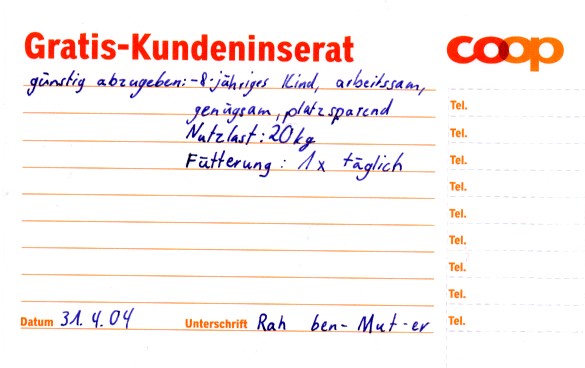 Gratis-Kundeninserat
coop
günstig abzugeben: -8-jähriges Kind, arbeitssam,
genügsam, platzsparend
Nutzlast: 20kg
Fütterung: 1x täglich
Tel.
Tel.
Tel.
Tel.
Tel.
Tel.
Tel.
Tel.
Tel.
Datum 31.4.04 Unterschrift Rah ben-Mut-er